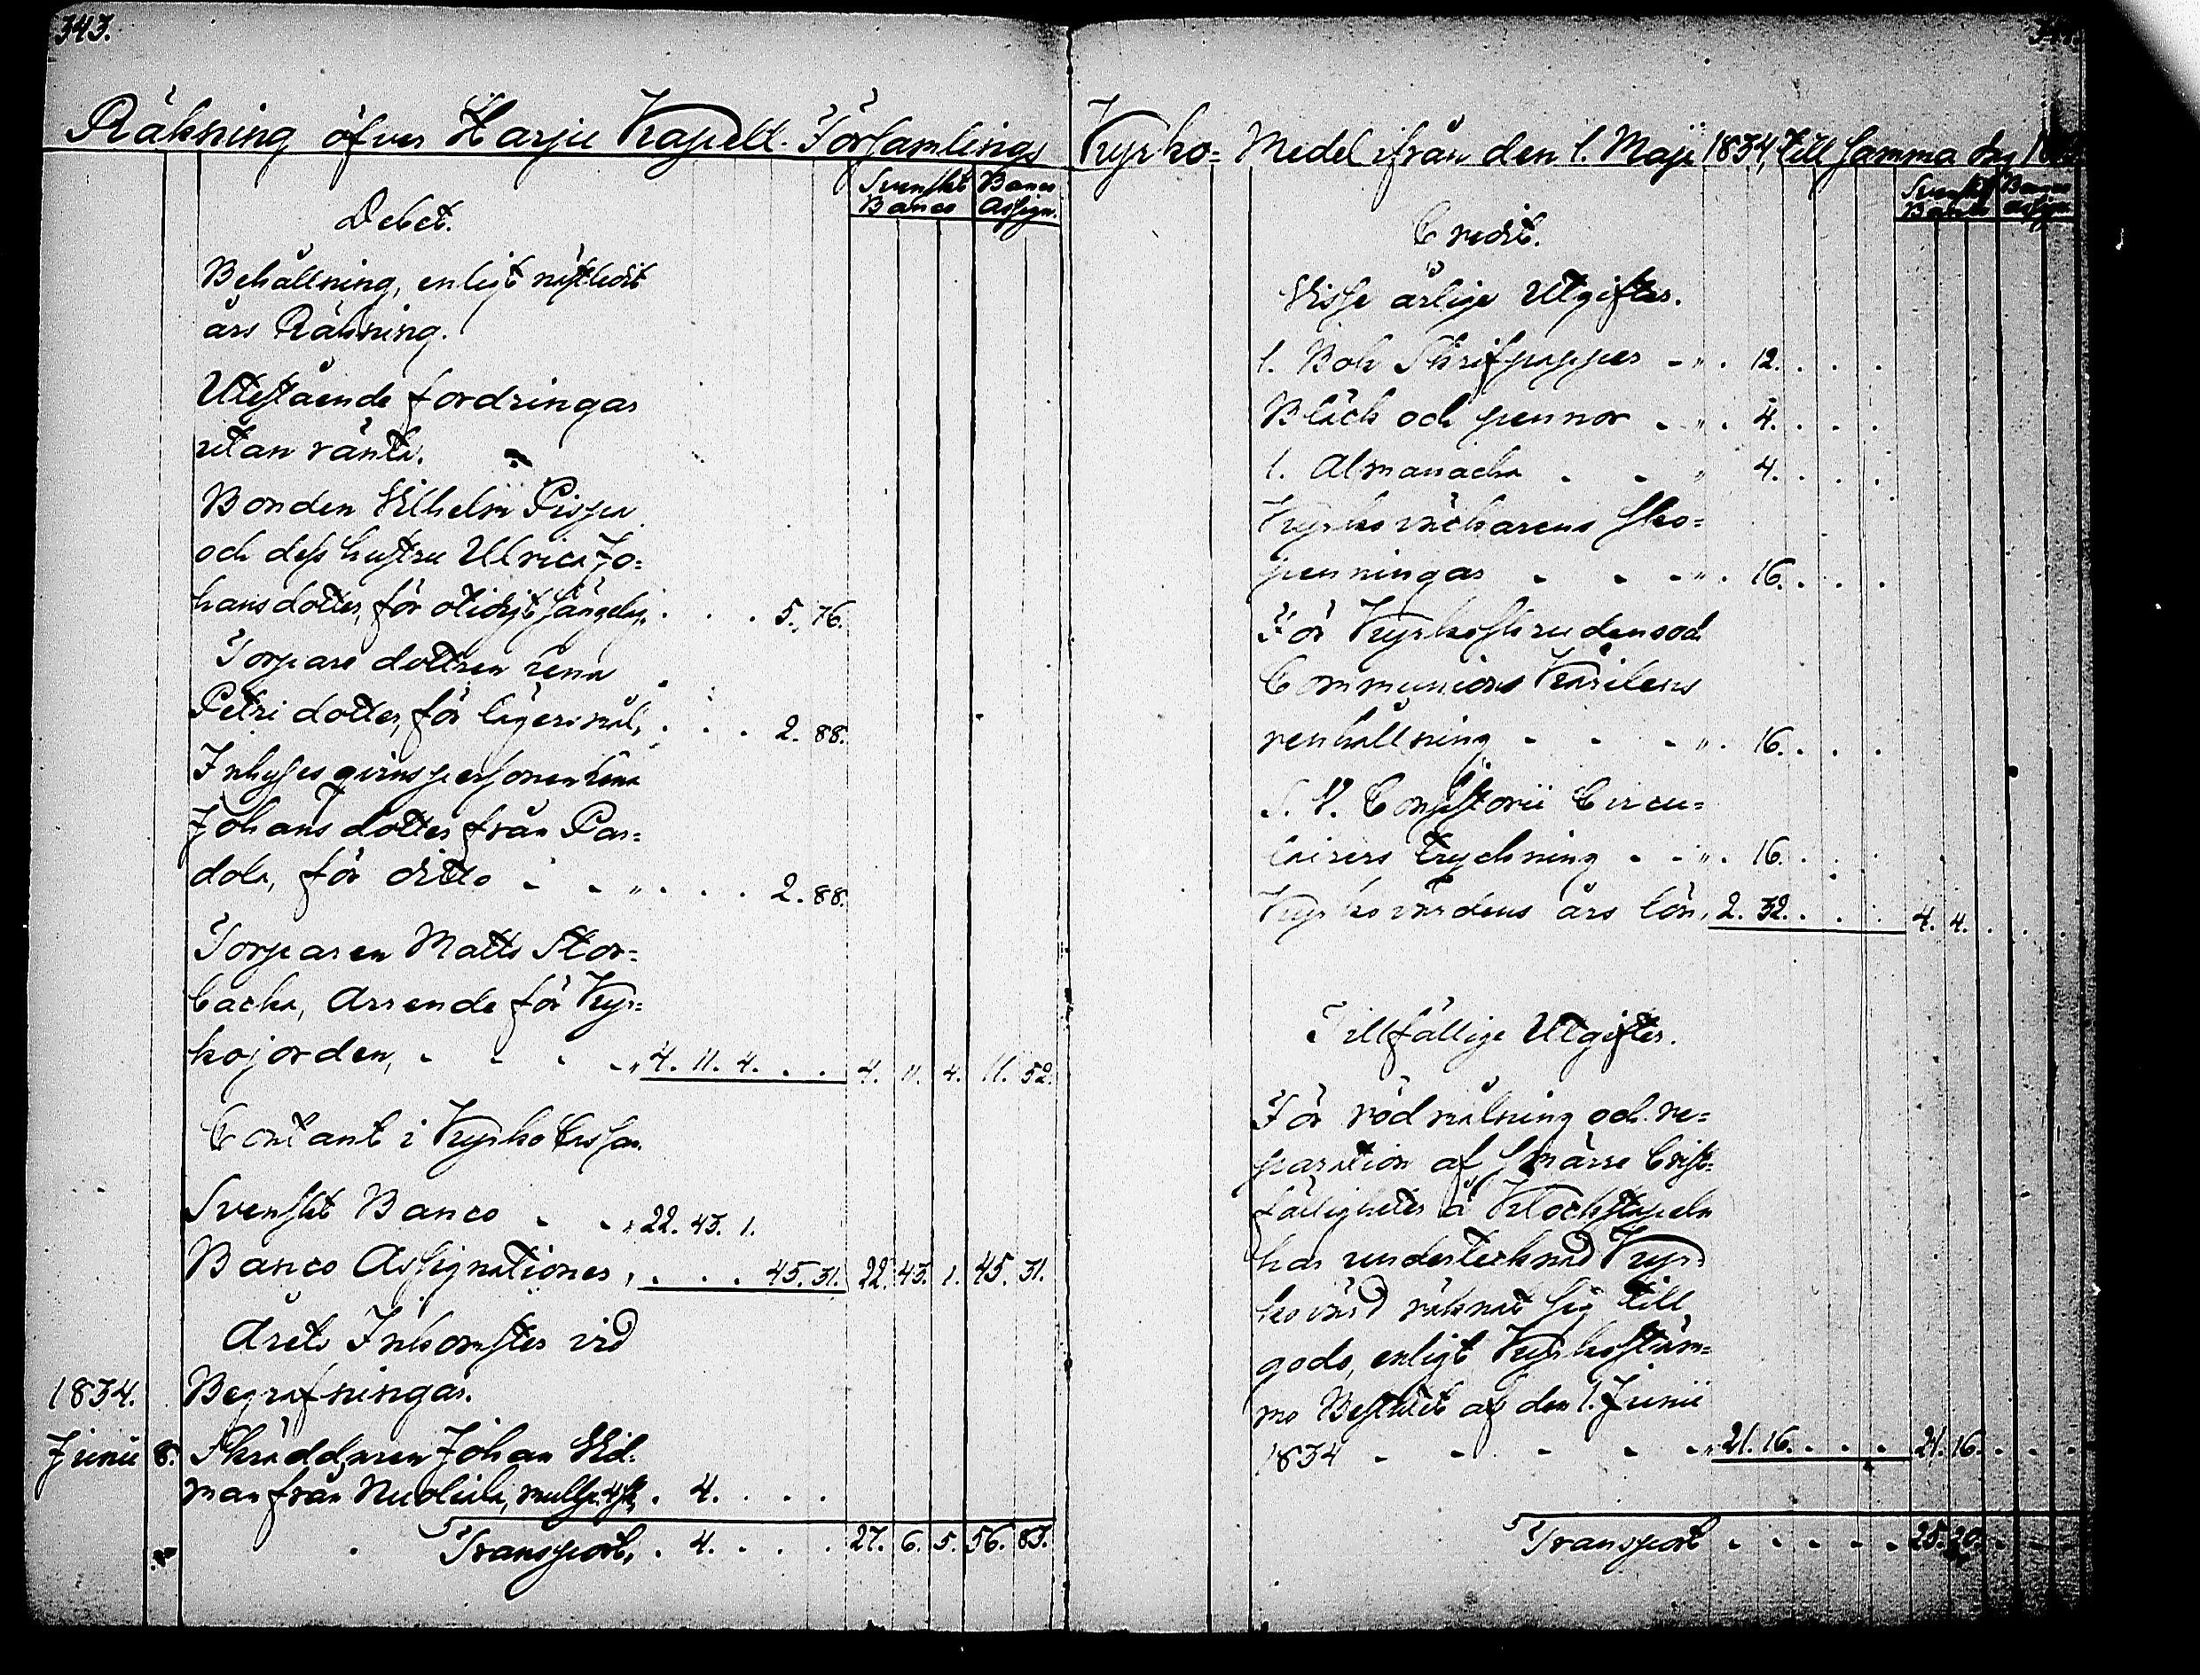 343.
Räkning öfver Harju Kapell-Församlings
Svenskt Banco
Banco Assign.
Debet.
Behållning, enligt nästledit
års Räkning.
Utestående fordringar
utan ränta.
Bonden Vilhelm
och dess hustru Ulrica Jo=
hansdotter, för otidigt sängelag . . . 5. 76.
Torpare dottren Lena
Petri dotter, för lägersmål, . . . 2. 88.
Inhyses qvinspersonen Lena
Johans dotter från Par=
dola, för ditto - - " . . . 2. 88.
Torparen Matts Stor=
backa, Arrende för Kyr=
kojorden, - - - " 4. 11. 4. . . 4. 11. 4. 11. 52.
Contant i Kyrko Cassan.
Svenskt Banco - - " 22. 43. 1.
Banco Assignationer, . . . 45. 31. 22. 43. 1. 45. 31.
Årets Inkomster vid
1834. Begrafningar.
Junii 8. Skräddaren Johan Vid=
man från Nuoliala, . 4. . . .
Transport, . 4. . . . 27. 6. 5. 56. 83.
Kyrko= Medel ifrån den 1. Maji 1834, till samma dag
Svenskt Banco
Banco Assign.
Credit.
Visse årlige Utgifter.
1. Bok Skrifpapper - " . 12. . . .
Bläck och pennor - " . 4. . . .
1. Almanacka - - " 4. . . .
Kyrkoväckarens sko=
penningar - - - " . 16. . . .
För Kyrkoskruden och
Communions Kärilens
renhållning - - - " . 16. . . .
S. V. Consistorii Circu=
lairers tryckning - - " . 16. . . .
Kyrkovärdens års lön, 2. 32. . . . 4. 4. . . .
Tillfällige Utgifter.
För rödmålning och re=
paration af smärre brist=
fälligheter å Klockstapeln
har undertecknad Kyr=
kovärd räknat sig till
godo, enligt Kyrkostäm=
mo Beslut af den 1. Junii
1834 - - - - - " 21. 16. . . . 21. 16. . . .
Transport - - - - - 25. 20. - - -